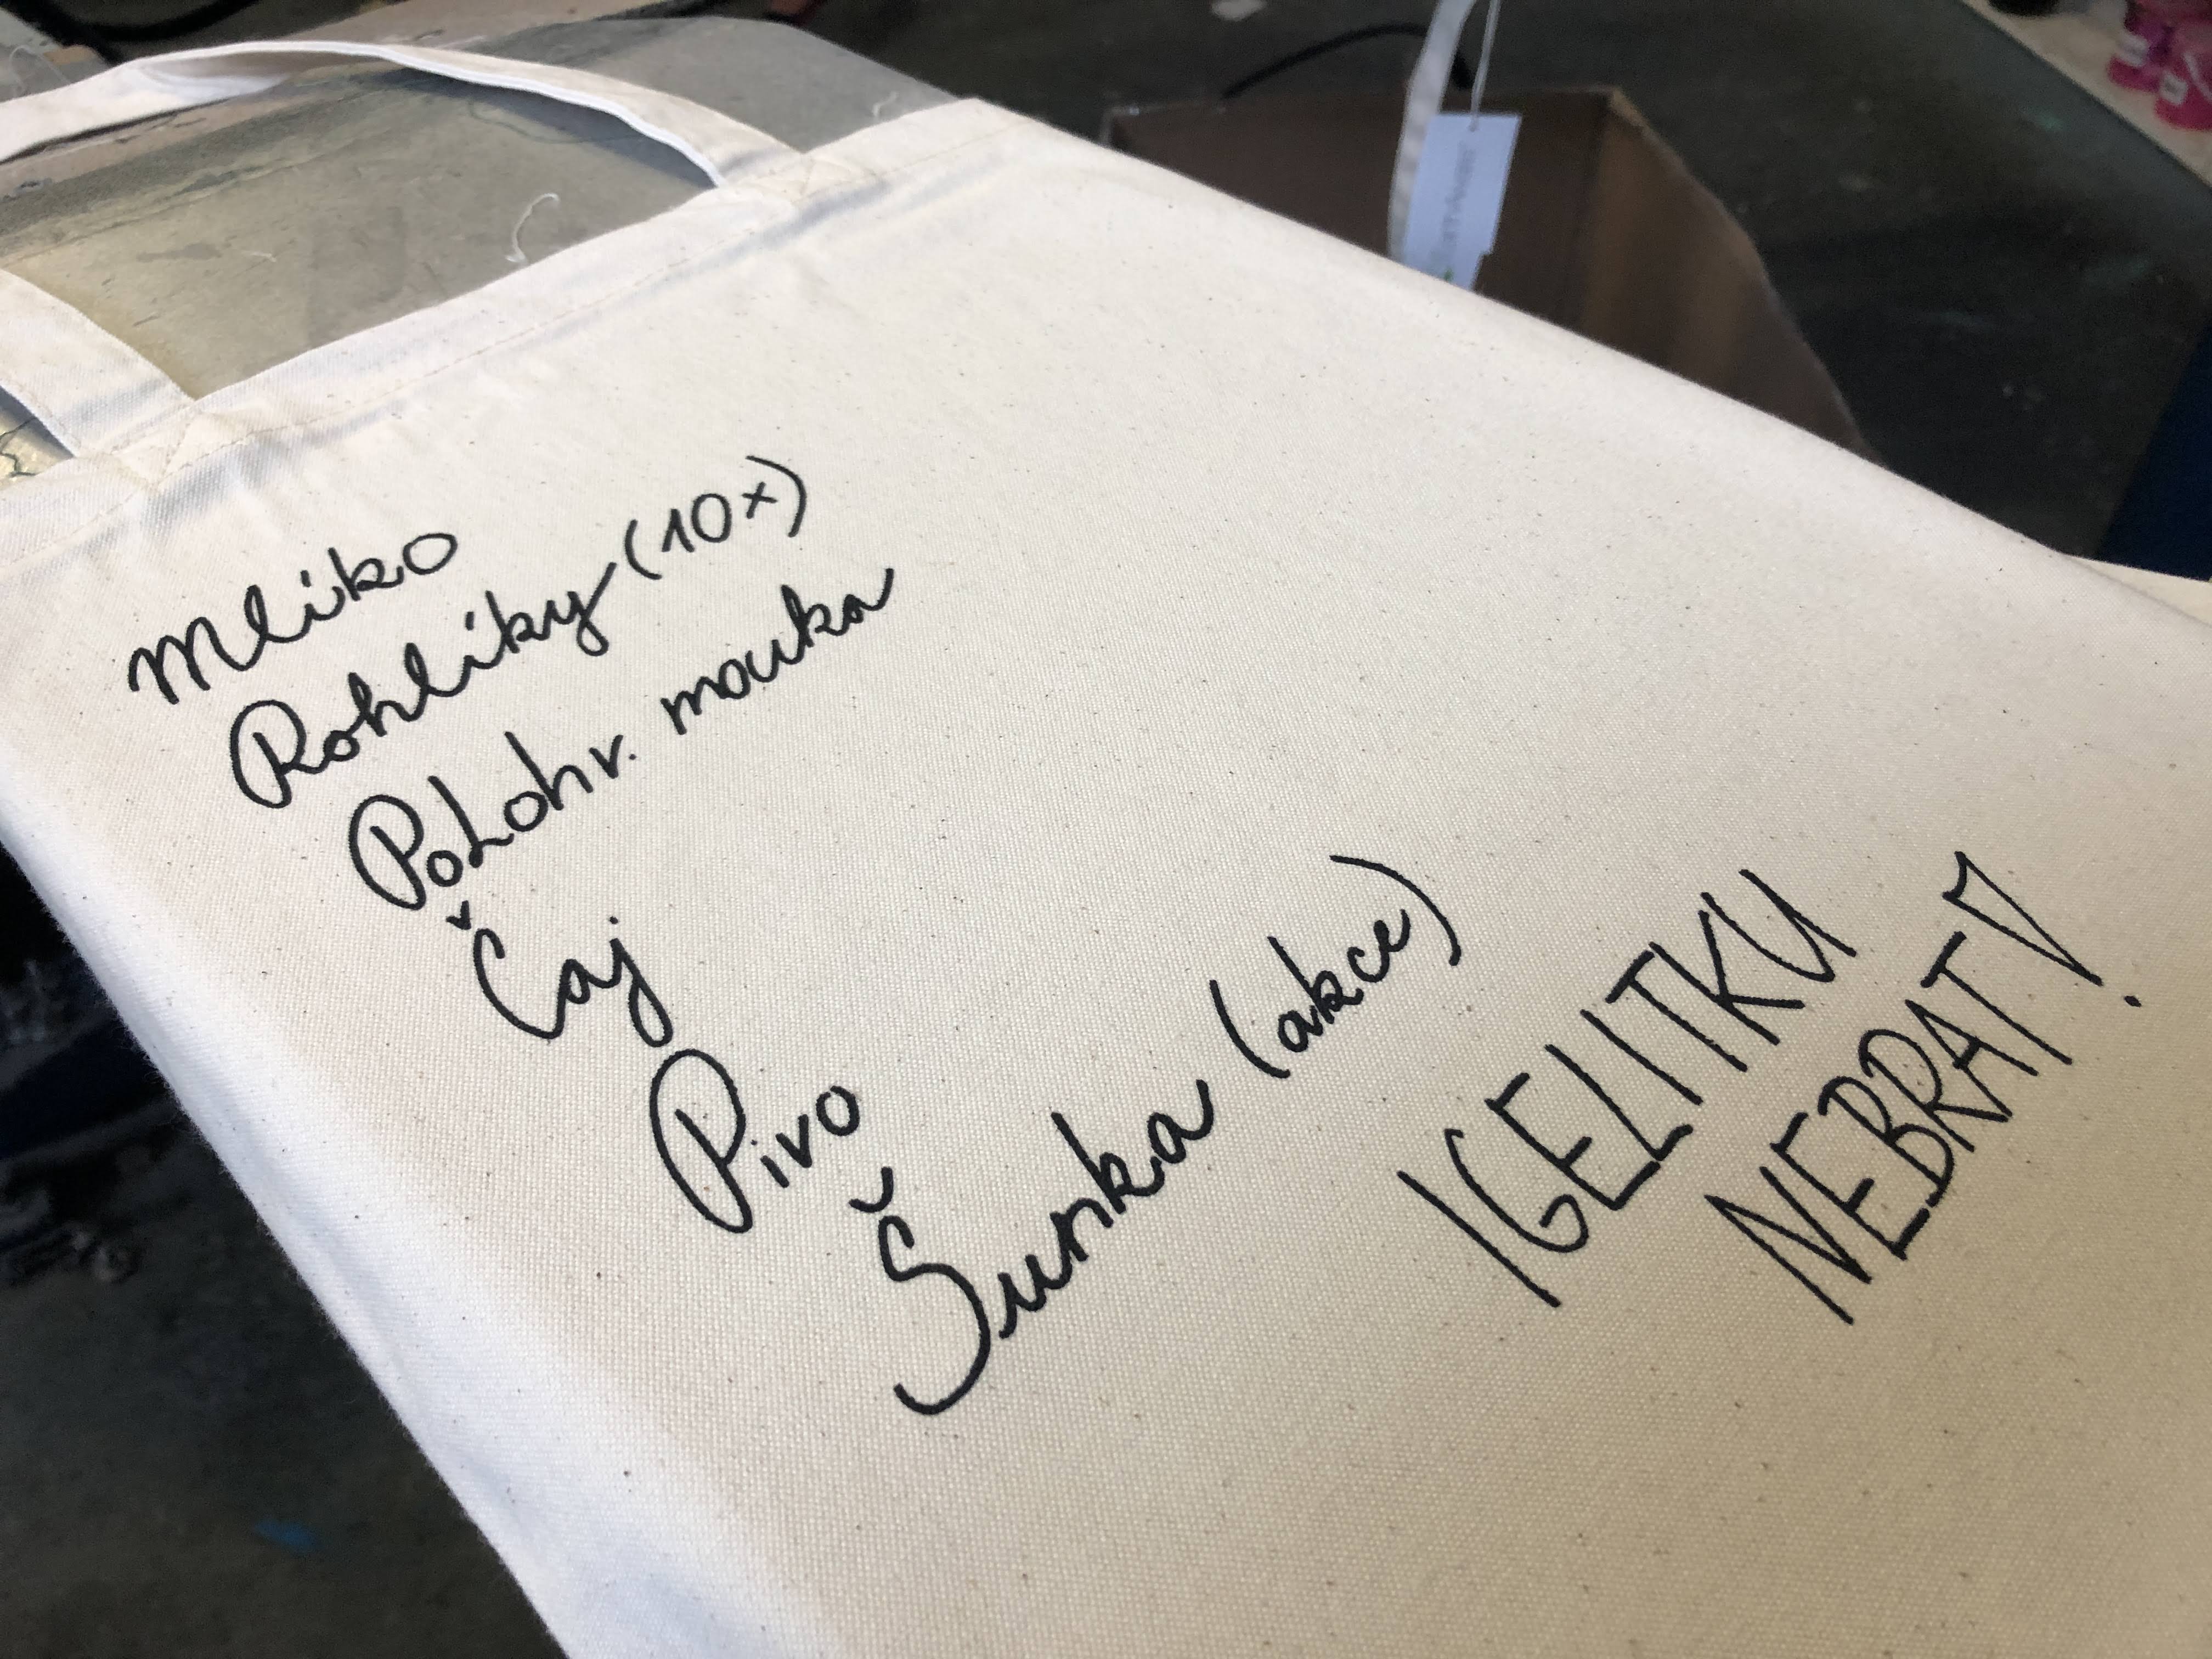 Mlíko
Rohlíky (10x)
Polohr. mouka
Čaj
Pivo
Šunka (akce)
IGELITKU
NEBRAT!